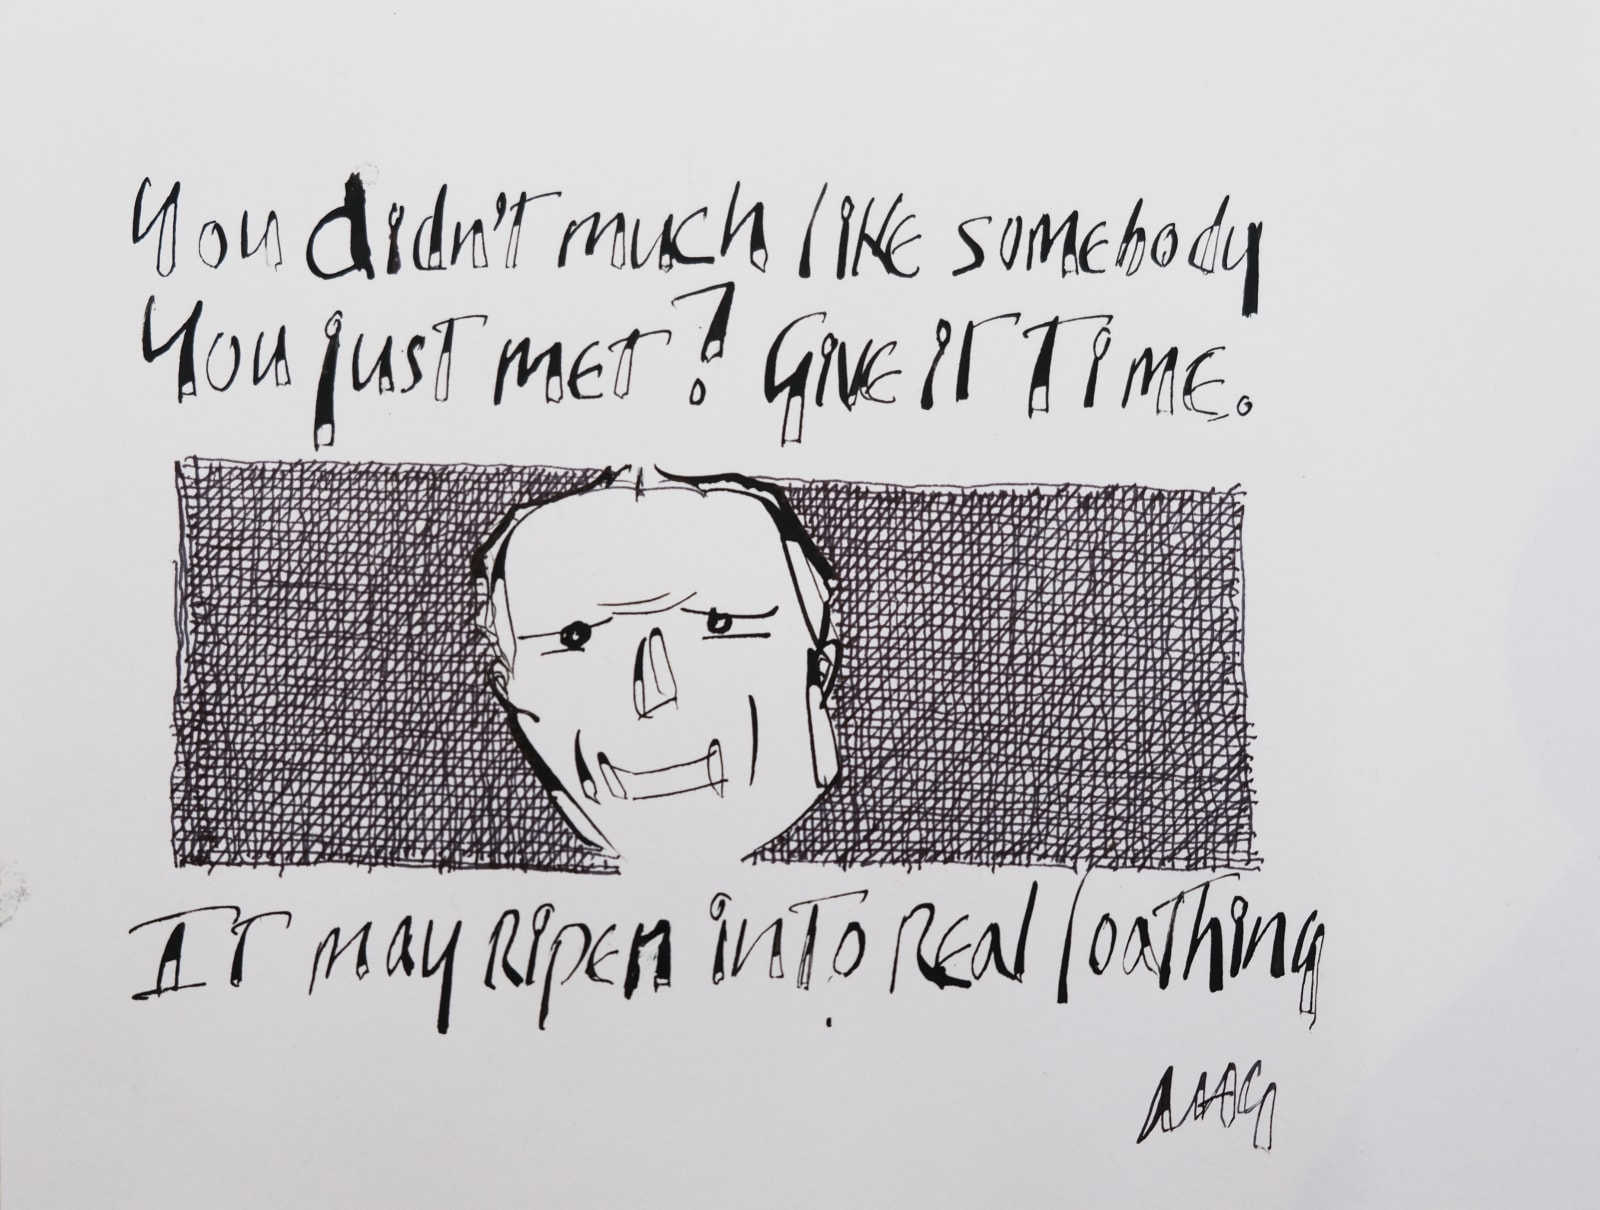 You didn't much like somebody
You just met? Give it time.
It may ripen into real loathing
MAG